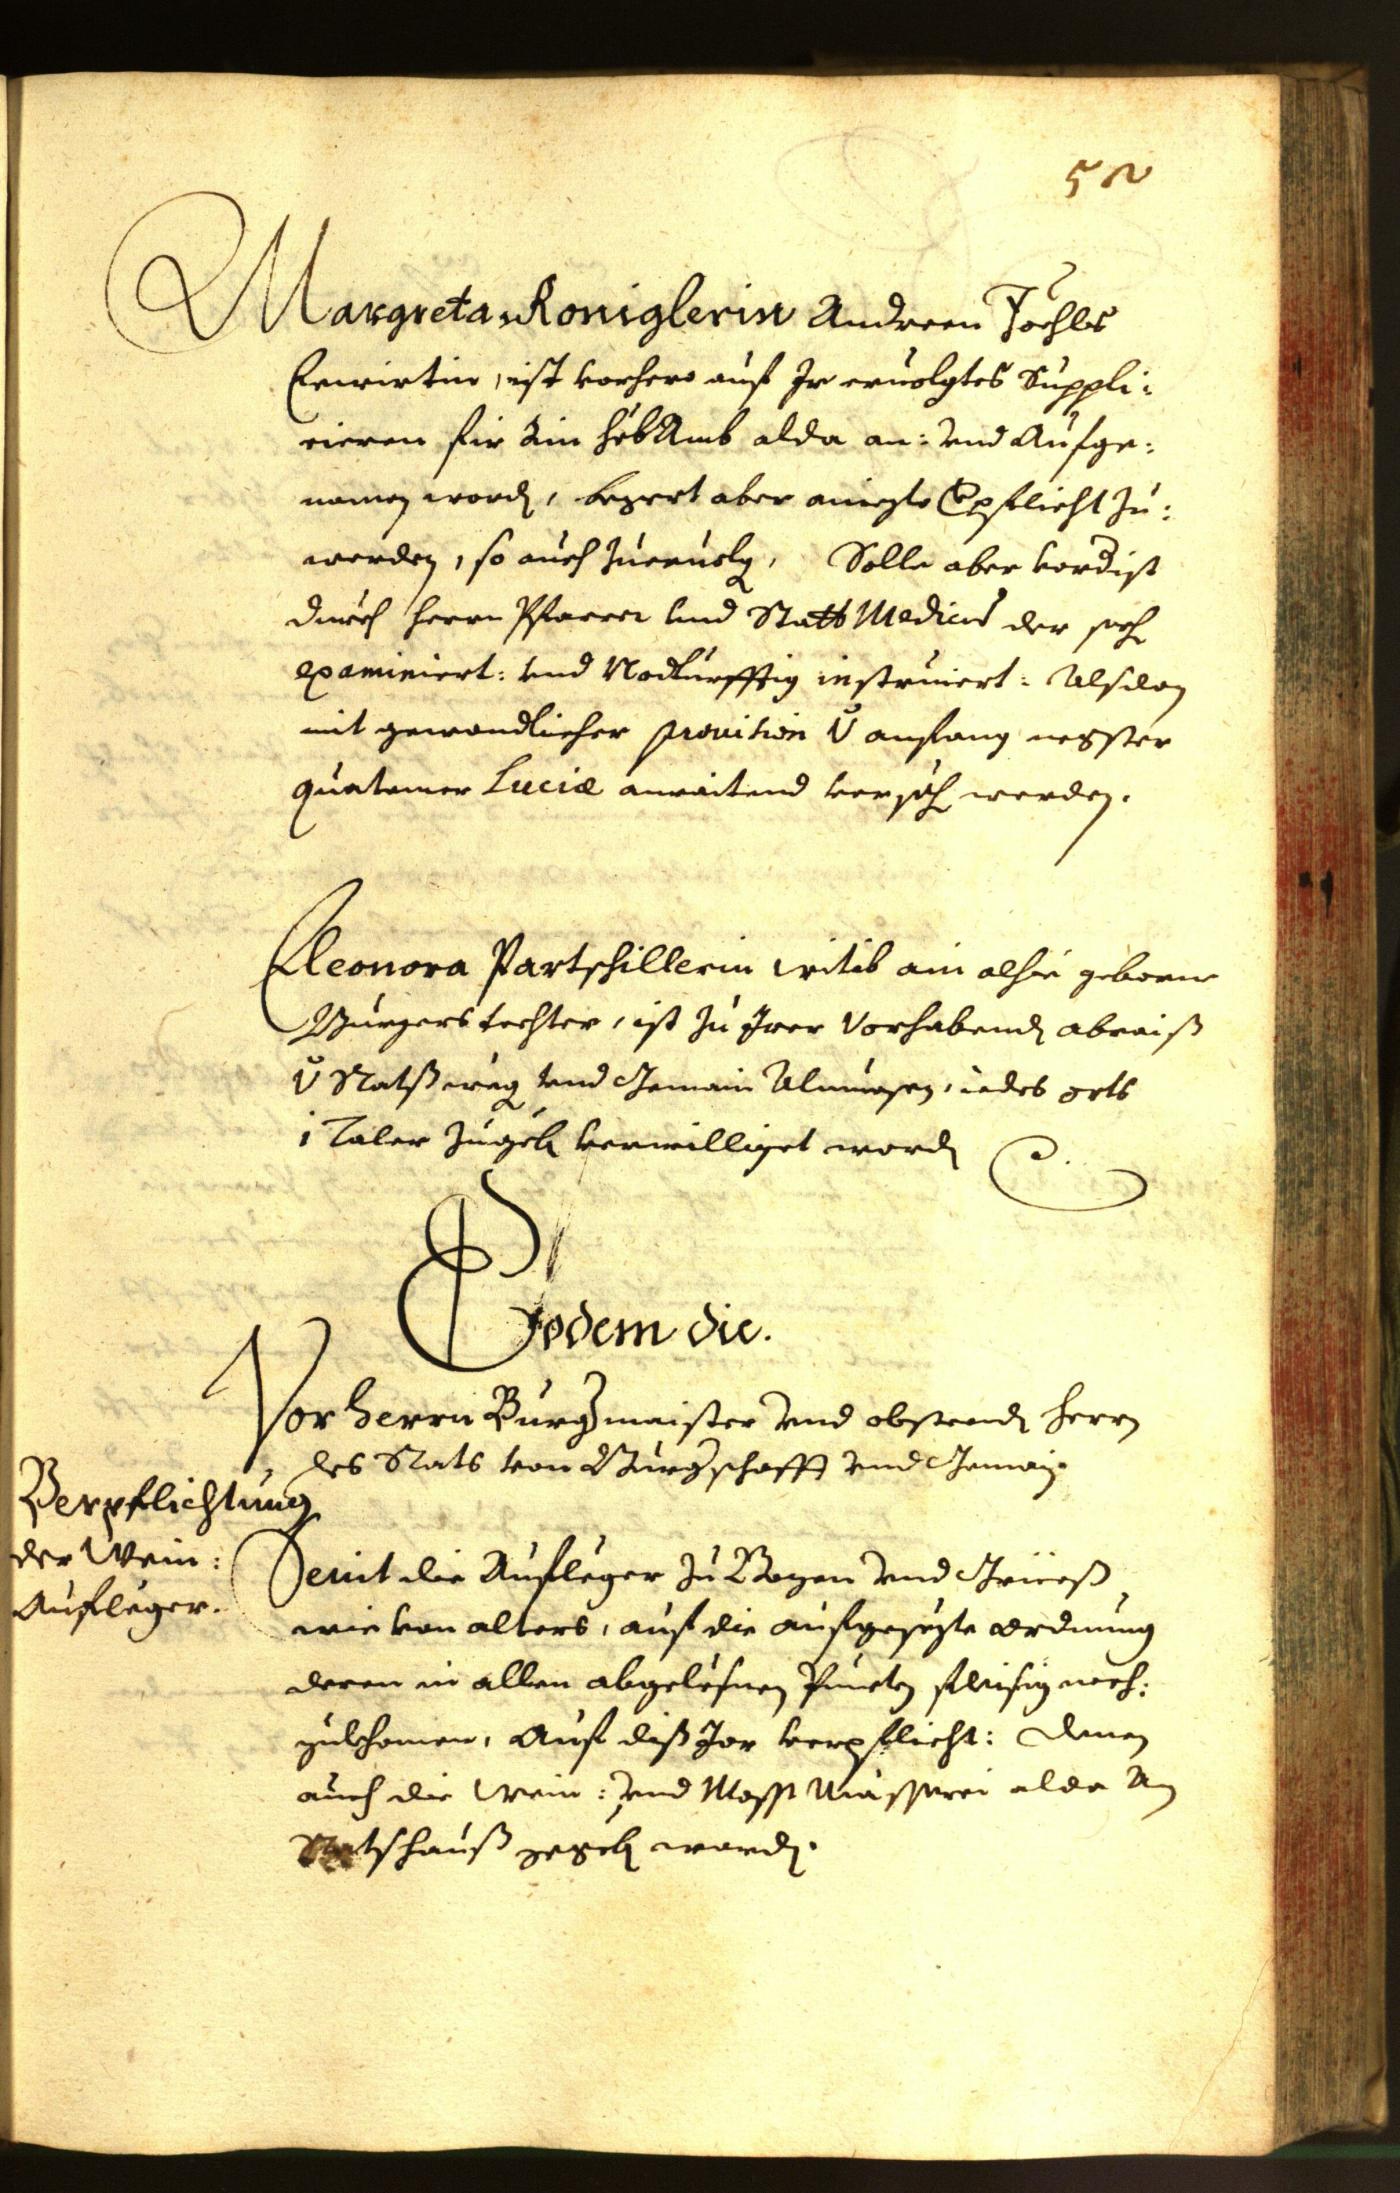 52
Margreta Roniglerin Andreen Jöchls
Eewirtin, ist vorhero auf Ir ervolgtes Suppli:
cieren für ain HebAmb alda an: und Aufge:
nomen word, begert aber aniezt Epflicht zu:
werden, so auch zuervolg, Solle aber vordist
durch herrn Pfarrer und Statt Medicus der sach
examiniert: und Nodturfftig instruiert: Alsdan
mit gewondlicher provision V anfang negster
quatemer Luciæ anraitend versech werden.
Eleonora Partschillerin witib ain alhie geborne
Burgers tochter, ist zu Irer vorhabend abraiß
V Ratßweg und Gemain Almuesen, iedes orts
1 Taler zugeb verwilliget word
Eodem die.
Vor Herrn Burgmaister und obsteend herrn
des Rats von Burgschafft und Gemain.
Verpflichtung
der Wein:
Aufleger.
Seint die Aufleger zu Bozen und Grieß
wie von alters, auf die aufgesezte ordnung
deren in allen abgelesnen Puncten fleisig noch:
zukhomen, Auf diß Jar verpflicht: denen
auch die Wein: und Mosst Mässerei alda Am
Ratshauß gegeb word.